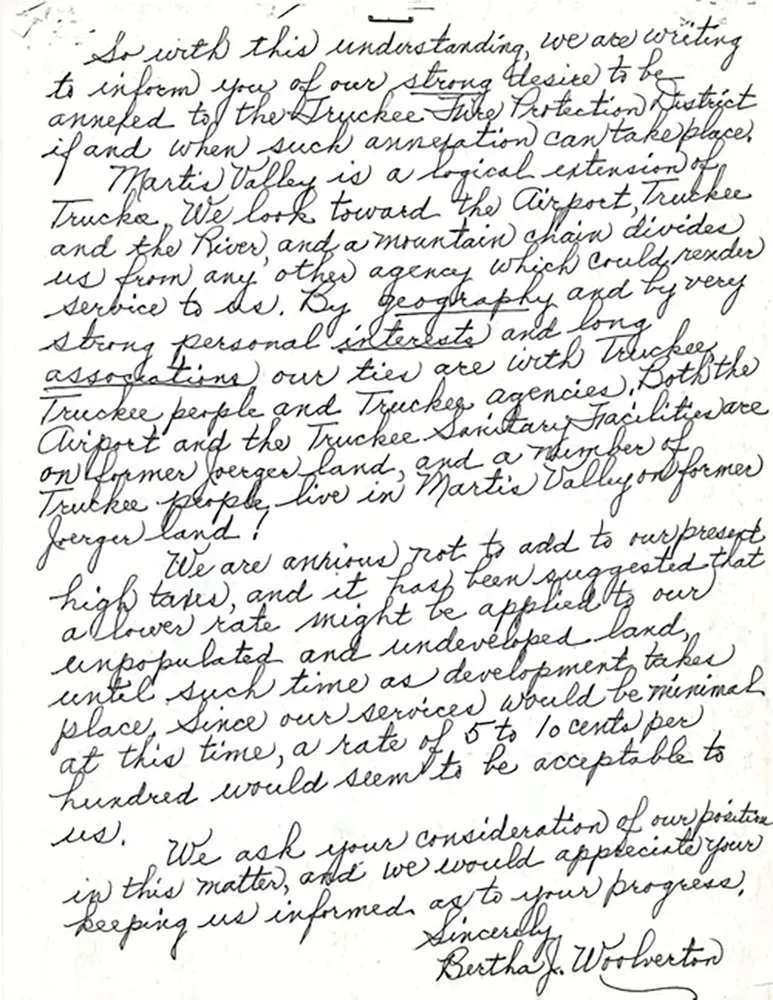 So with this understanding, we are writing
to inform you of our strong desire to be
annexed to the Truckee Fire Protection District
if and when such annexation can take place.
Martis Valley is a logical extension of
Truckee. We look toward the Airport, Truckee
and the River, and a mountain chain divides
us from any other agency which could render
service to us. By geography and by very
strong personal interests and long
associations our ties are with Truckee,
Truckee people and Truckee agencies. Both the
Airport and the Truckee Sanitary Facilities are
on former Joerger land, and a number of
Truckee people live in Martis Valley on former
Joerger land!
We are anxious not to add to our present
high taxes, and it has been suggested that
a lower rate might be applied to our
unpopulated and undeveloped land,
until such time as development takes
place. Since our services would be minimal
at this time, a rate of 5 to 10 cents per
hundred would seem to be acceptable to
us.
We ask your consideration of our position
in this matter, and we would appreciate your
keeping us informed as to your progress.
Sincerely
Bertha J. Woolverton